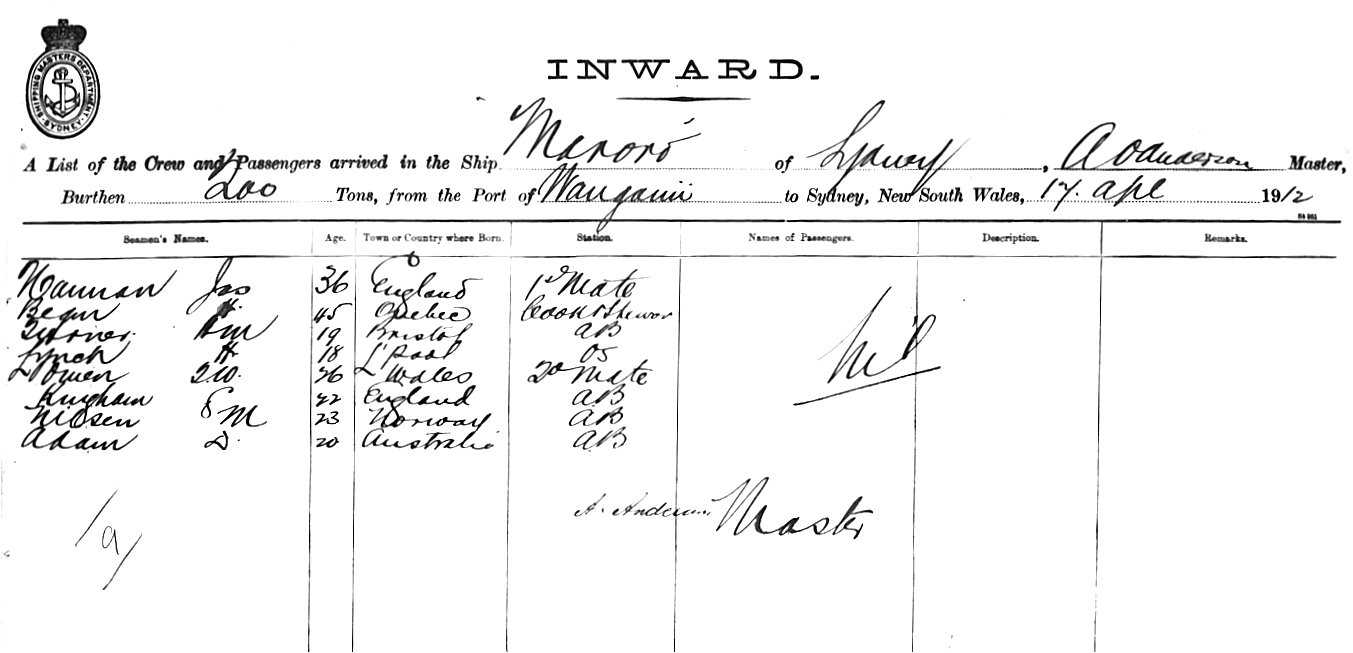 SHIPPING MASTERS DEPARTMENT SYDNEY
INWARD.
A List of the Crew and Passengers arrived in the Ship Manoro of Sydney, A O Anderson Master,
Burthen 200 Tons, from the Port of Wanganui to Sydney, New South Wales, 17. Apl 1912
Seamen's Names. Age. Town or Country where Born. Station. Names of Passengers. Description. Remarks.
Hannan Jas 36 England 1st Mate
H. 45 Quebec Cook & Stewar
Turner Wm 19 Bristol AB
Lynch H 18 L'pool OS
Owen 26 Wales 2d Mate
Kingham 22 England AB
Nilsen M 23 Norway AB
Adam D. 20 Australia AB
Nil
A. Anderson Master
/9/